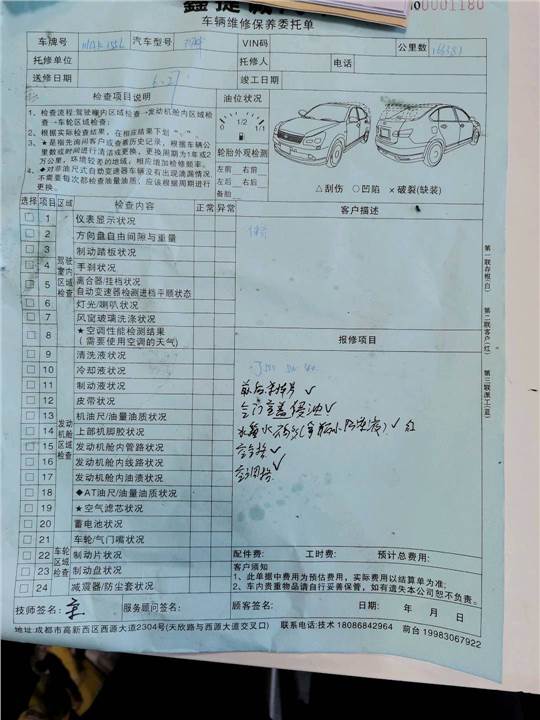 0001180
车辆维修保养委托单
车牌号 汽车型号 VIN码 公里数
托修单位 托修人 电话
送修日期 竣工日期
检查项目说明
1、检查流程:驾驶棚内区域检查→发动机舱内区域检查→车轮区域检查;
2、根据实际检查结果,在相应结果下划“√”
3、★是指先询问客户或查看历史记录,根据车辆公里数或时间进行清洁或更换,更换周期为1年或2万公里,环境较差的地域,相应增加检修频率。
4、◆对非油尺式自动变速器车辆没有出现泄漏情况,不需要每次都检查油量油质,应该根据周期进行更换。
油位状况
0 1/2 1/1
轮胎外观检测
左前 右前
左后 右后
备胎
△刮伤 ○凹陷 ×破裂(缺装)
选择 项目 区域 检查内容 正常 异常
驾驶室内区域检查
1 仪表显示状况
2 方向盘自由间隙与重量
3 制动踏板状况
4 手刹状况
5 离合器/挂档状况
自动变速器检测进档平顺状态
6 灯光/喇叭状况
7 风窗玻璃洗涤状况
8 ★空调性能检测结果
(需要使用空调的天气)
发动机舱区域检查
9 清洗液状况
10 冷却液状况
11 制动液状况
12 皮带状况
13 机油尺/油量油质状况
14 上部机脚胶状况
15 发动机舱内管路状况
16 发动机舱内线路状况
17 发动机舱内油渍状况
18 ◆AT油尺/油量油质状况
19 ★空气滤芯状况
20 蓄电池状况
车轮区域检查
21 车轮/气门嘴状况
22 制动片状况
23 制动盘状况
24 减震器/防尘套状况
客户描述
报修项目
配件费: 工时费: 预计总费用:
客户须知
1、此单据中费用为预估费用,实际费用以结算单为准;
2、车内贵重物品请自行妥善保管,如有遗失本公司恕不负责。
技师签名: 服务顾问签名: 顾客签名: 日期: 年 月 日
地址:成都市高新西区西源大道2304号(天欣路与西源大道交叉口) 联系电话:技术 18086842964 前台 19983067922
第一联存根(白)
第二联客户(红)
第三联派工(蓝)